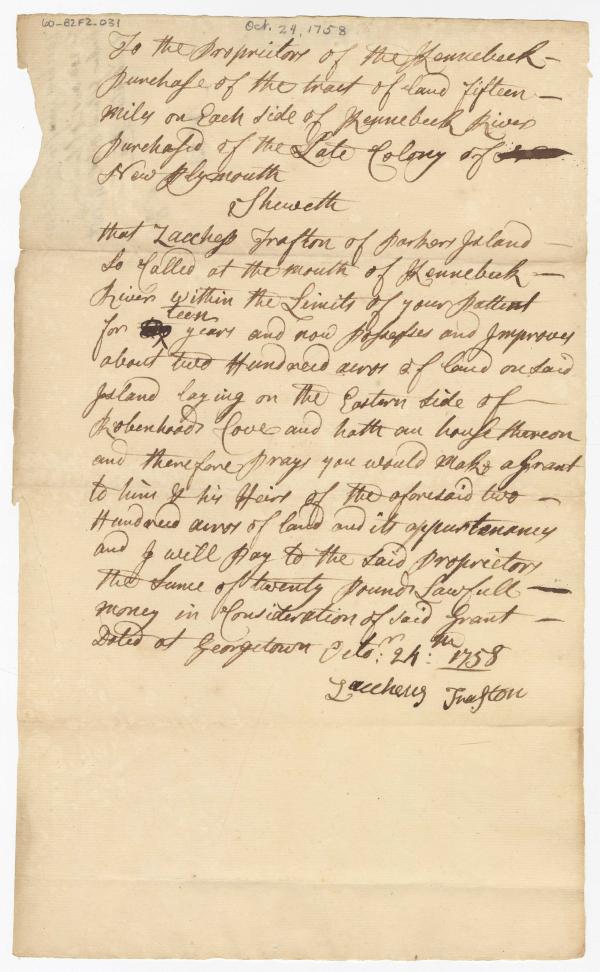 60-B2F2-031
Oct. 24, 1758
To the Proprietors of the Kennebeck
Purchase of the tract of land fifteen
miles on Each side of Kennebeck River
Purchased of the Late Colony of
New Plymouth
Sheweth
that Zaccheus Trafton of Parkers Island
So Called at the mouth of Kennebeck
River within the Limits of your Pattent
for teen years and now Possesses and Improves
about two Hundred acros of land on said
Island laying on the Eastern side of
Robenhoods Cove and hath an house thereon
and therefore Prays you would make a Grant
to him & his Heirs of the aforesaid two
Hundred acros of land and its appurtenances
and I will Pay to the said Proprietors
the Sume of twenty Pounds Lawfull
money in Consideration of said Grant
Dated at Georgetown Octor: 24:th 1758
Zaccheus Trafton